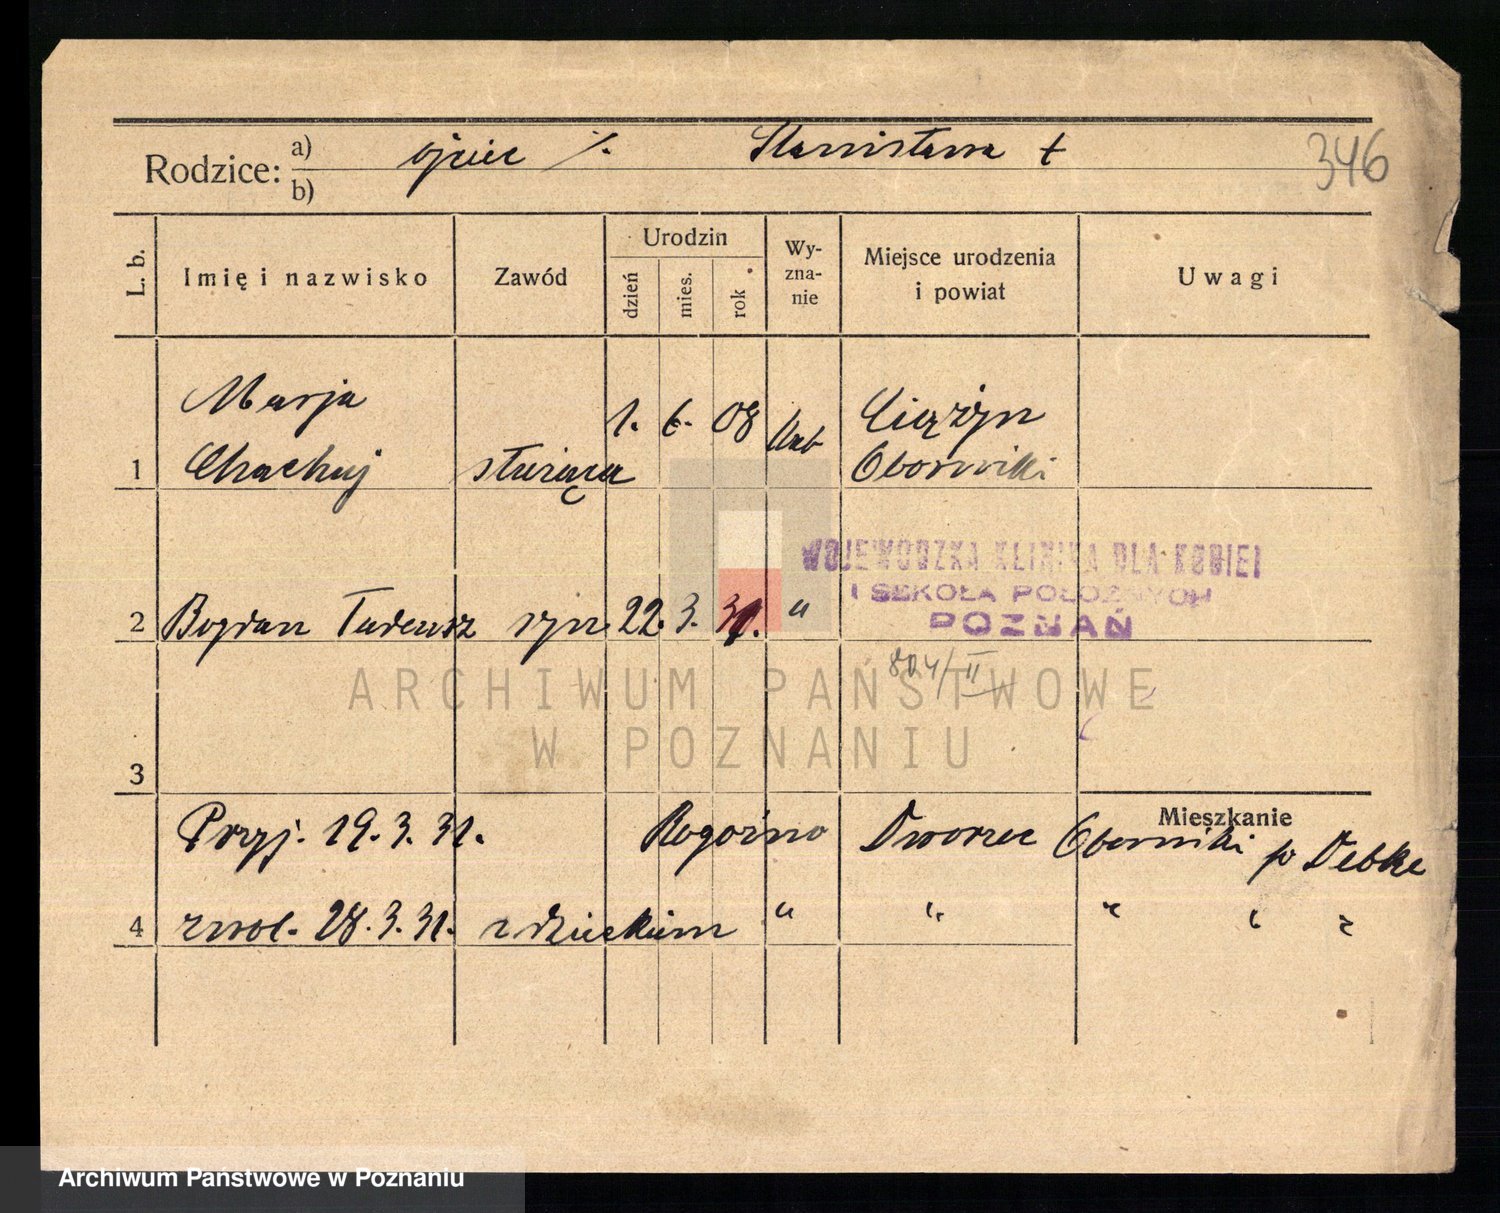 Rodzice: a) ojciec ./. Stanisława †
b)
346
L. b.
Imię i nazwisko
Zawód
Urodzin
dzień
mies.
rok
Wy-
zna-
nie
Miejsce urodzenia
i powiat
Uwagi
Marja 1. 6. 08 kat Ciążyn
1 Chachuj służąca Oborniki
WOJEWÓDZKA KLINIKA DLA KOBIET
I SZKOŁA POŁOŻNYCH
2 Bogdan Tadeusz syn 22. 3. 31. "
POZNAŃ
804/II
3
Mieszkanie
Przyj. 19. 3. 31. Rogoźno Dworzec Oborniki p Debke
4 zwol. 28. 3. 31. z dzieckiem " " " " "
ARCHIWUM PAŃSTWOWE
W POZNANIU
Archiwum Państwowe w Poznaniu